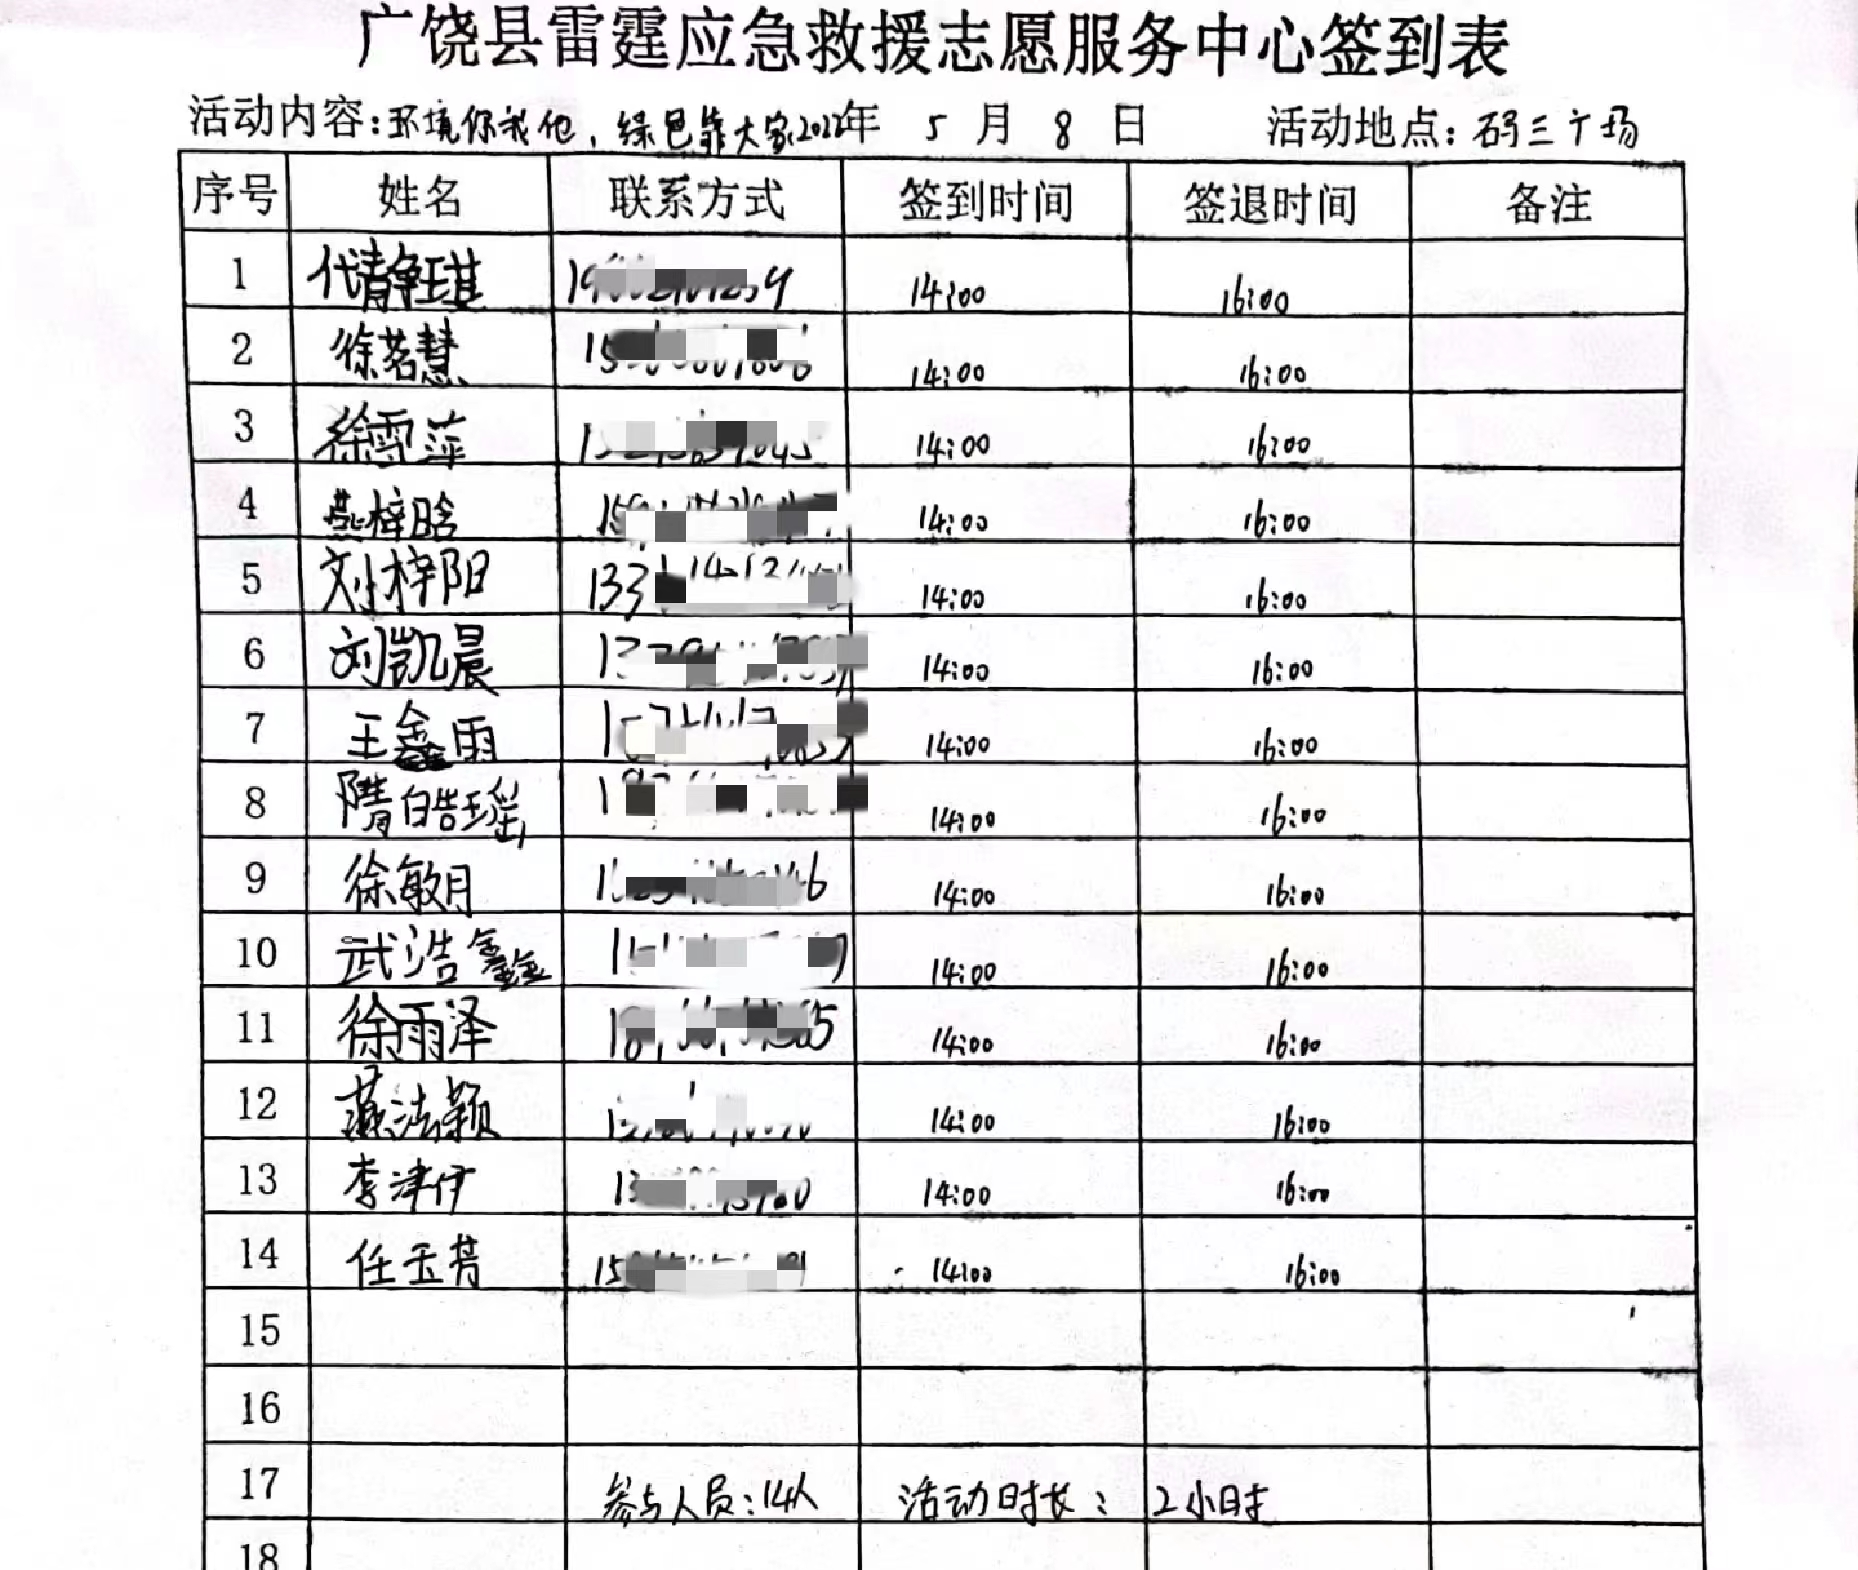 广饶县雷霆应急救援志愿服务中心签到表
活动内容:环境你我他,绿色靠大家2022年 5 月 8 日 活动地点:码三广场
序号 姓名 联系方式 签到时间 签退时间 备注
1 代静琪 14:00 16:00
2 徐茗慧 14:00 16:00
3 徐雪萍 14:00 16:00
4 燕梓晗 14:00 16:00
5 刘梓阳 133 14:00 16:00
6 刘凯晨 14:00 16:00
7 王鑫雨 14:00 16:00
8 隋皓瑶 14:00 16:00
9 徐敏月 14:00 16:00
10 武浩鑫 14:00 16:00
11 徐雨泽 14:00 16:00
12 燕洁颖 14:00 16:00
13 李津伊 14:00 16:00
14 任玉芳 14:00 16:00
15
16
17 参与人员:14人 活动时长: 2小时
18